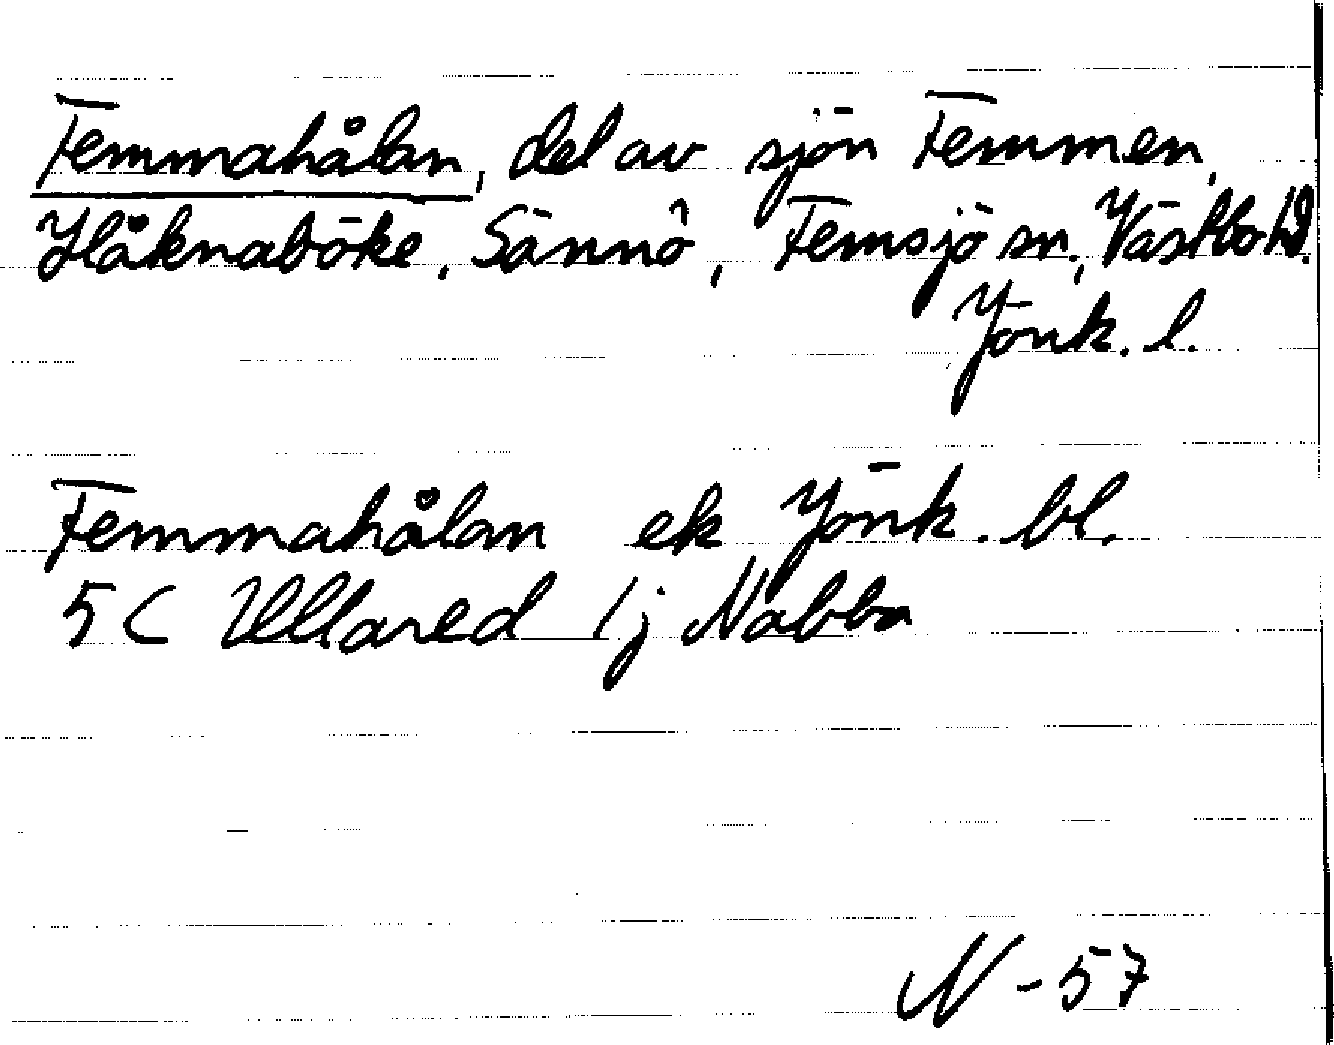 Femmahålan, del av sjön Femmen,
Håknaböke, Sännö, Femsjö sn., Västbo hd.
Jönk. l.
Femmahålan ek Jönk. bl.
5C Ullared 1j Nabba
N-57